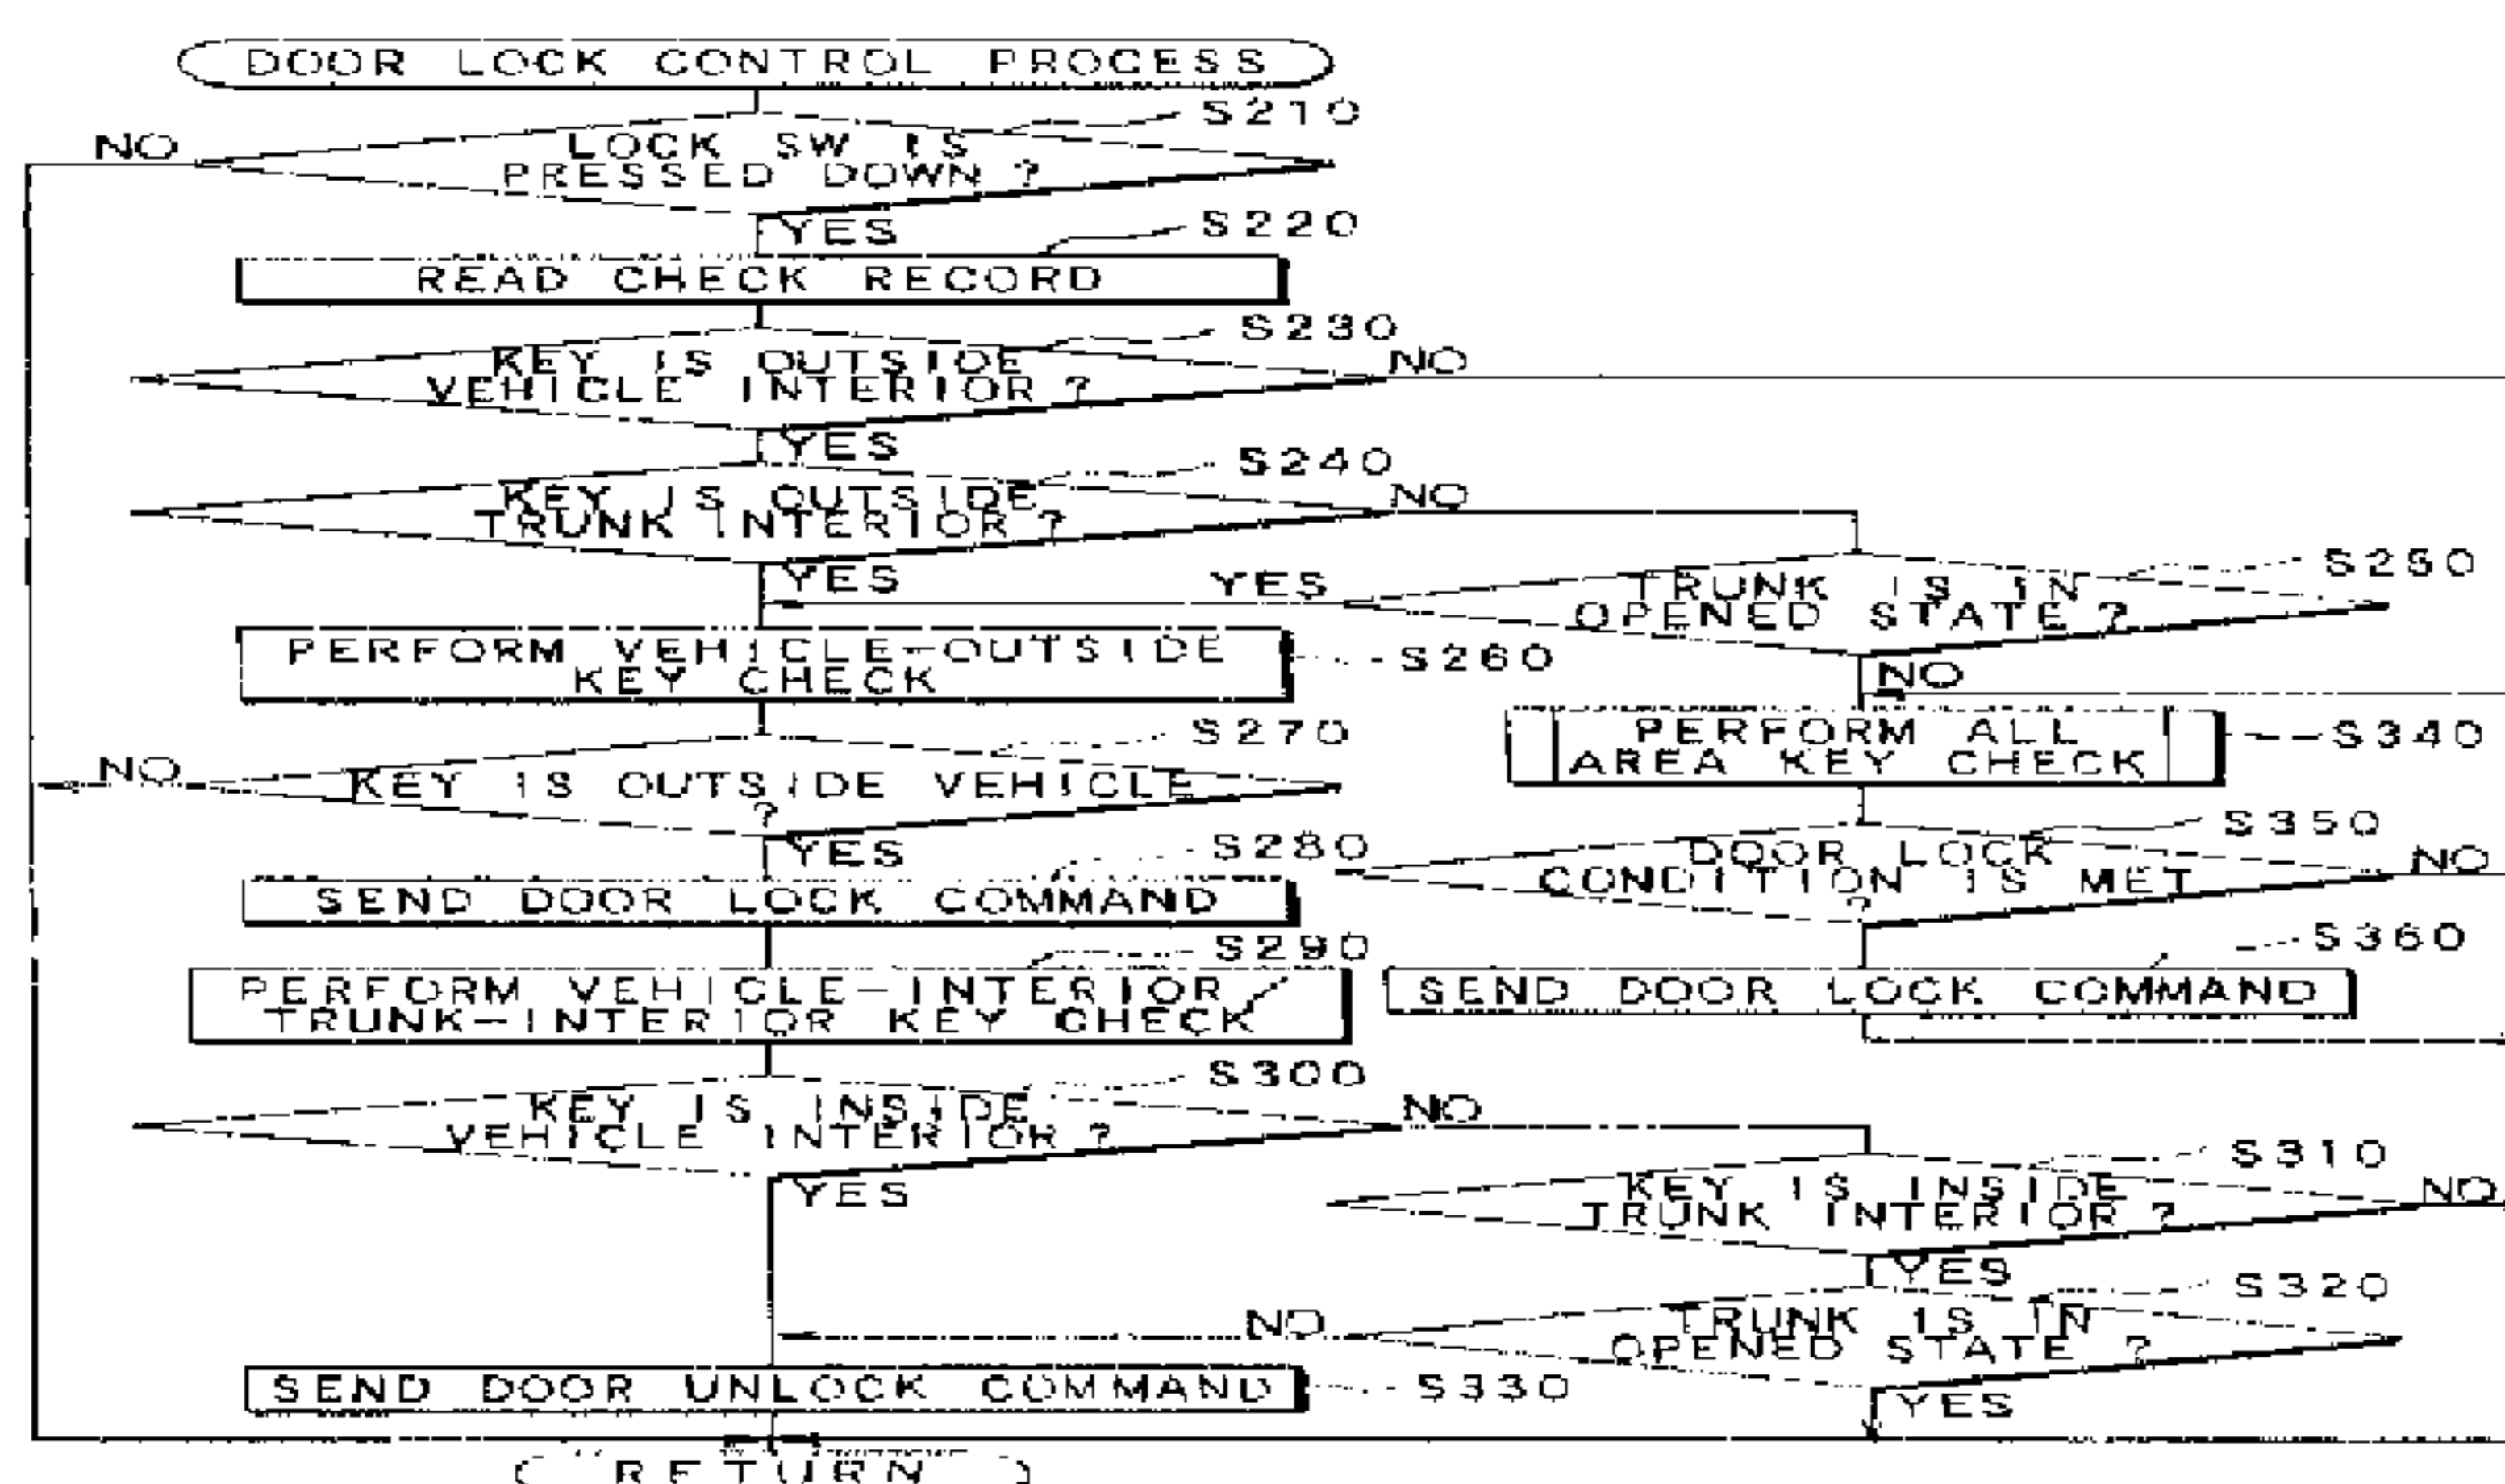 DOOR LOCK CONTROL PROCESS
S210
NO
LOCK SW IS
PRESSED DOWN ?
YES
S220
READ CHECK RECORD
S230
KEY IS OUTSIDE
VEHICLE INTERIOR ?
NO
YES
S240
KEY IS OUTSIDE
TRUNK INTERIOR ?
NO
YES
YES
S250
TRUNK IS IN
OPENED STATE ?
NO
PERFORM VEHICLE-OUTSIDE
KEY CHECK
S260
PERFORM ALL
AREA KEY CHECK
S340
S270
NO
KEY IS OUTSIDE VEHICLE
?
YES
S350
DOOR LOCK
CONDITION IS MET
?
NO
S280
SEND DOOR LOCK COMMAND
S360
SEND DOOR LOCK COMMAND
S290
PERFORM VEHICLE-INTERIOR/
TRUNK-INTERIOR KEY CHECK
S300
KEY IS INSIDE
VEHICLE INTERIOR ?
NO
YES
S310
KEY IS INSIDE
TRUNK INTERIOR ?
NO
YES
S320
NO
TRUNK IS IN
OPENED STATE ?
YES
SEND DOOR UNLOCK COMMAND
S330
RETURN